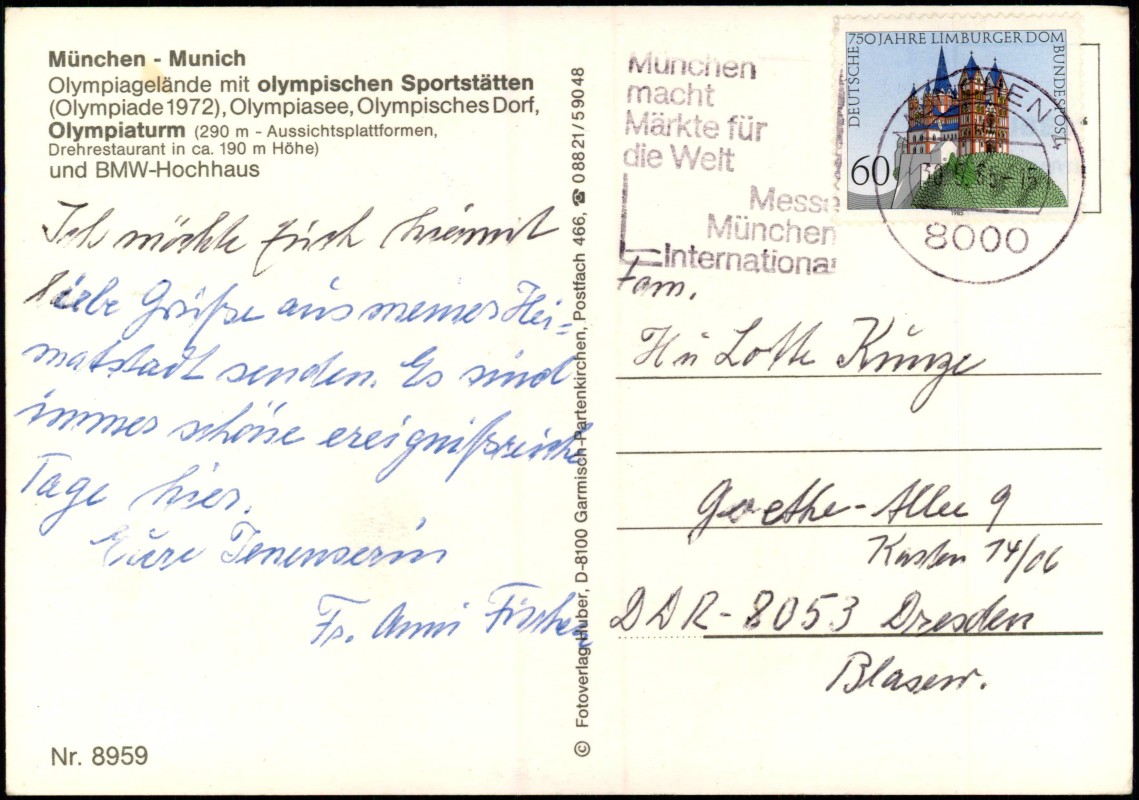 München - Munich
Olympiagelände mit olympischen Sportstätten
(Olympiade 1972), Olympiasee, Olympisches Dorf,
Olympiaturm (290 m - Aussichtsplattformen,
Drehrestaurant in ca. 190 m Höhe)
und BMW-Hochhaus
Ich möchte Euch hiermit
liebe Grüße aus meiner Hei=
matstadt senden. Es sind
immer schöne ereignißreiche
Tage hier.
Eure Jenenserin
Fr. Anni Fischer
Nr. 8959
© Fotoverlag Huber, D-8100 Garmisch-Partenkirchen, Postfach 466, ☎ 08821/59048
München
macht
Märkte für
die Welt
Messe
München
International
DEUTSCHE BUNDESPOST
750 JAHRE LIMBURGER DOM
60
1985
MÜNCHEN
8000
Fam.
H u Lotte Kunze
Goethe-Allee 9
Kasten 14/06
DDR-8053 Dresden
Blasew.